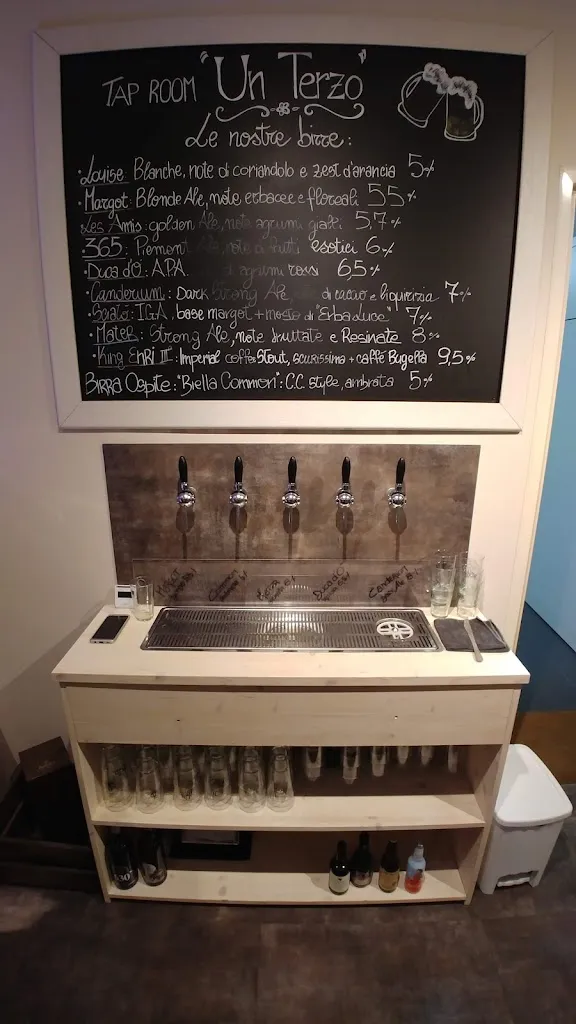 TAP ROOM "Un Terzo"
Le nostre birre:
• Louise: Blanche, note di coriandolo e zest d'arancia 5%
• Margot: Blonde Ale, note erbacee e floreali 5,5%
Les Amis: golden Ale, note agrumi gialli 5,7%
365: Piemont Ale, note di frutti esotici 6%
• Duca d'O: A.P.A. agrumi rossi 6,5%
• Canderium: Dark Strong Ale, note di cacao e liquirizia 7%
I.G.A., base margot + mosto di "Erbaluce" 7%
• Mater: Strong Ale, note fruttate e Resinate 8%
• King EnRI III°: Imperial coffe Stout, scurissima + caffè Bugella 9,5%
BIRRA Ospite: "Biella Common": C.C. style, ambrata 5%